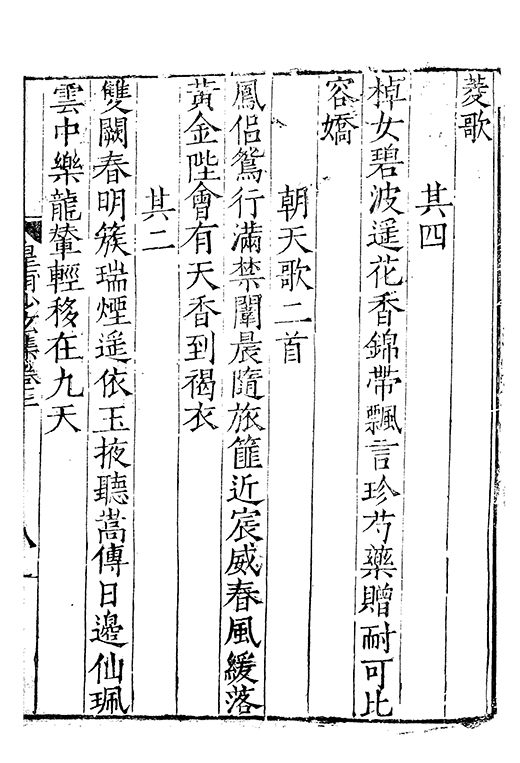 菱歌
其四
棹女碧波遥花香錦帶飄言珍芍藥贈耐可比
容嬌
朝天歌二首
鳳侣鴛行滿禁闈晨隨旅篚近宸威春風緩落
黃金陛會有天香到褐衣
其二
雙闕春明簇瑞煙遥依玉掖聽嵩傳日邊仙珮
雲中樂龍輦輕移在九天
皇甫少玄集卷三